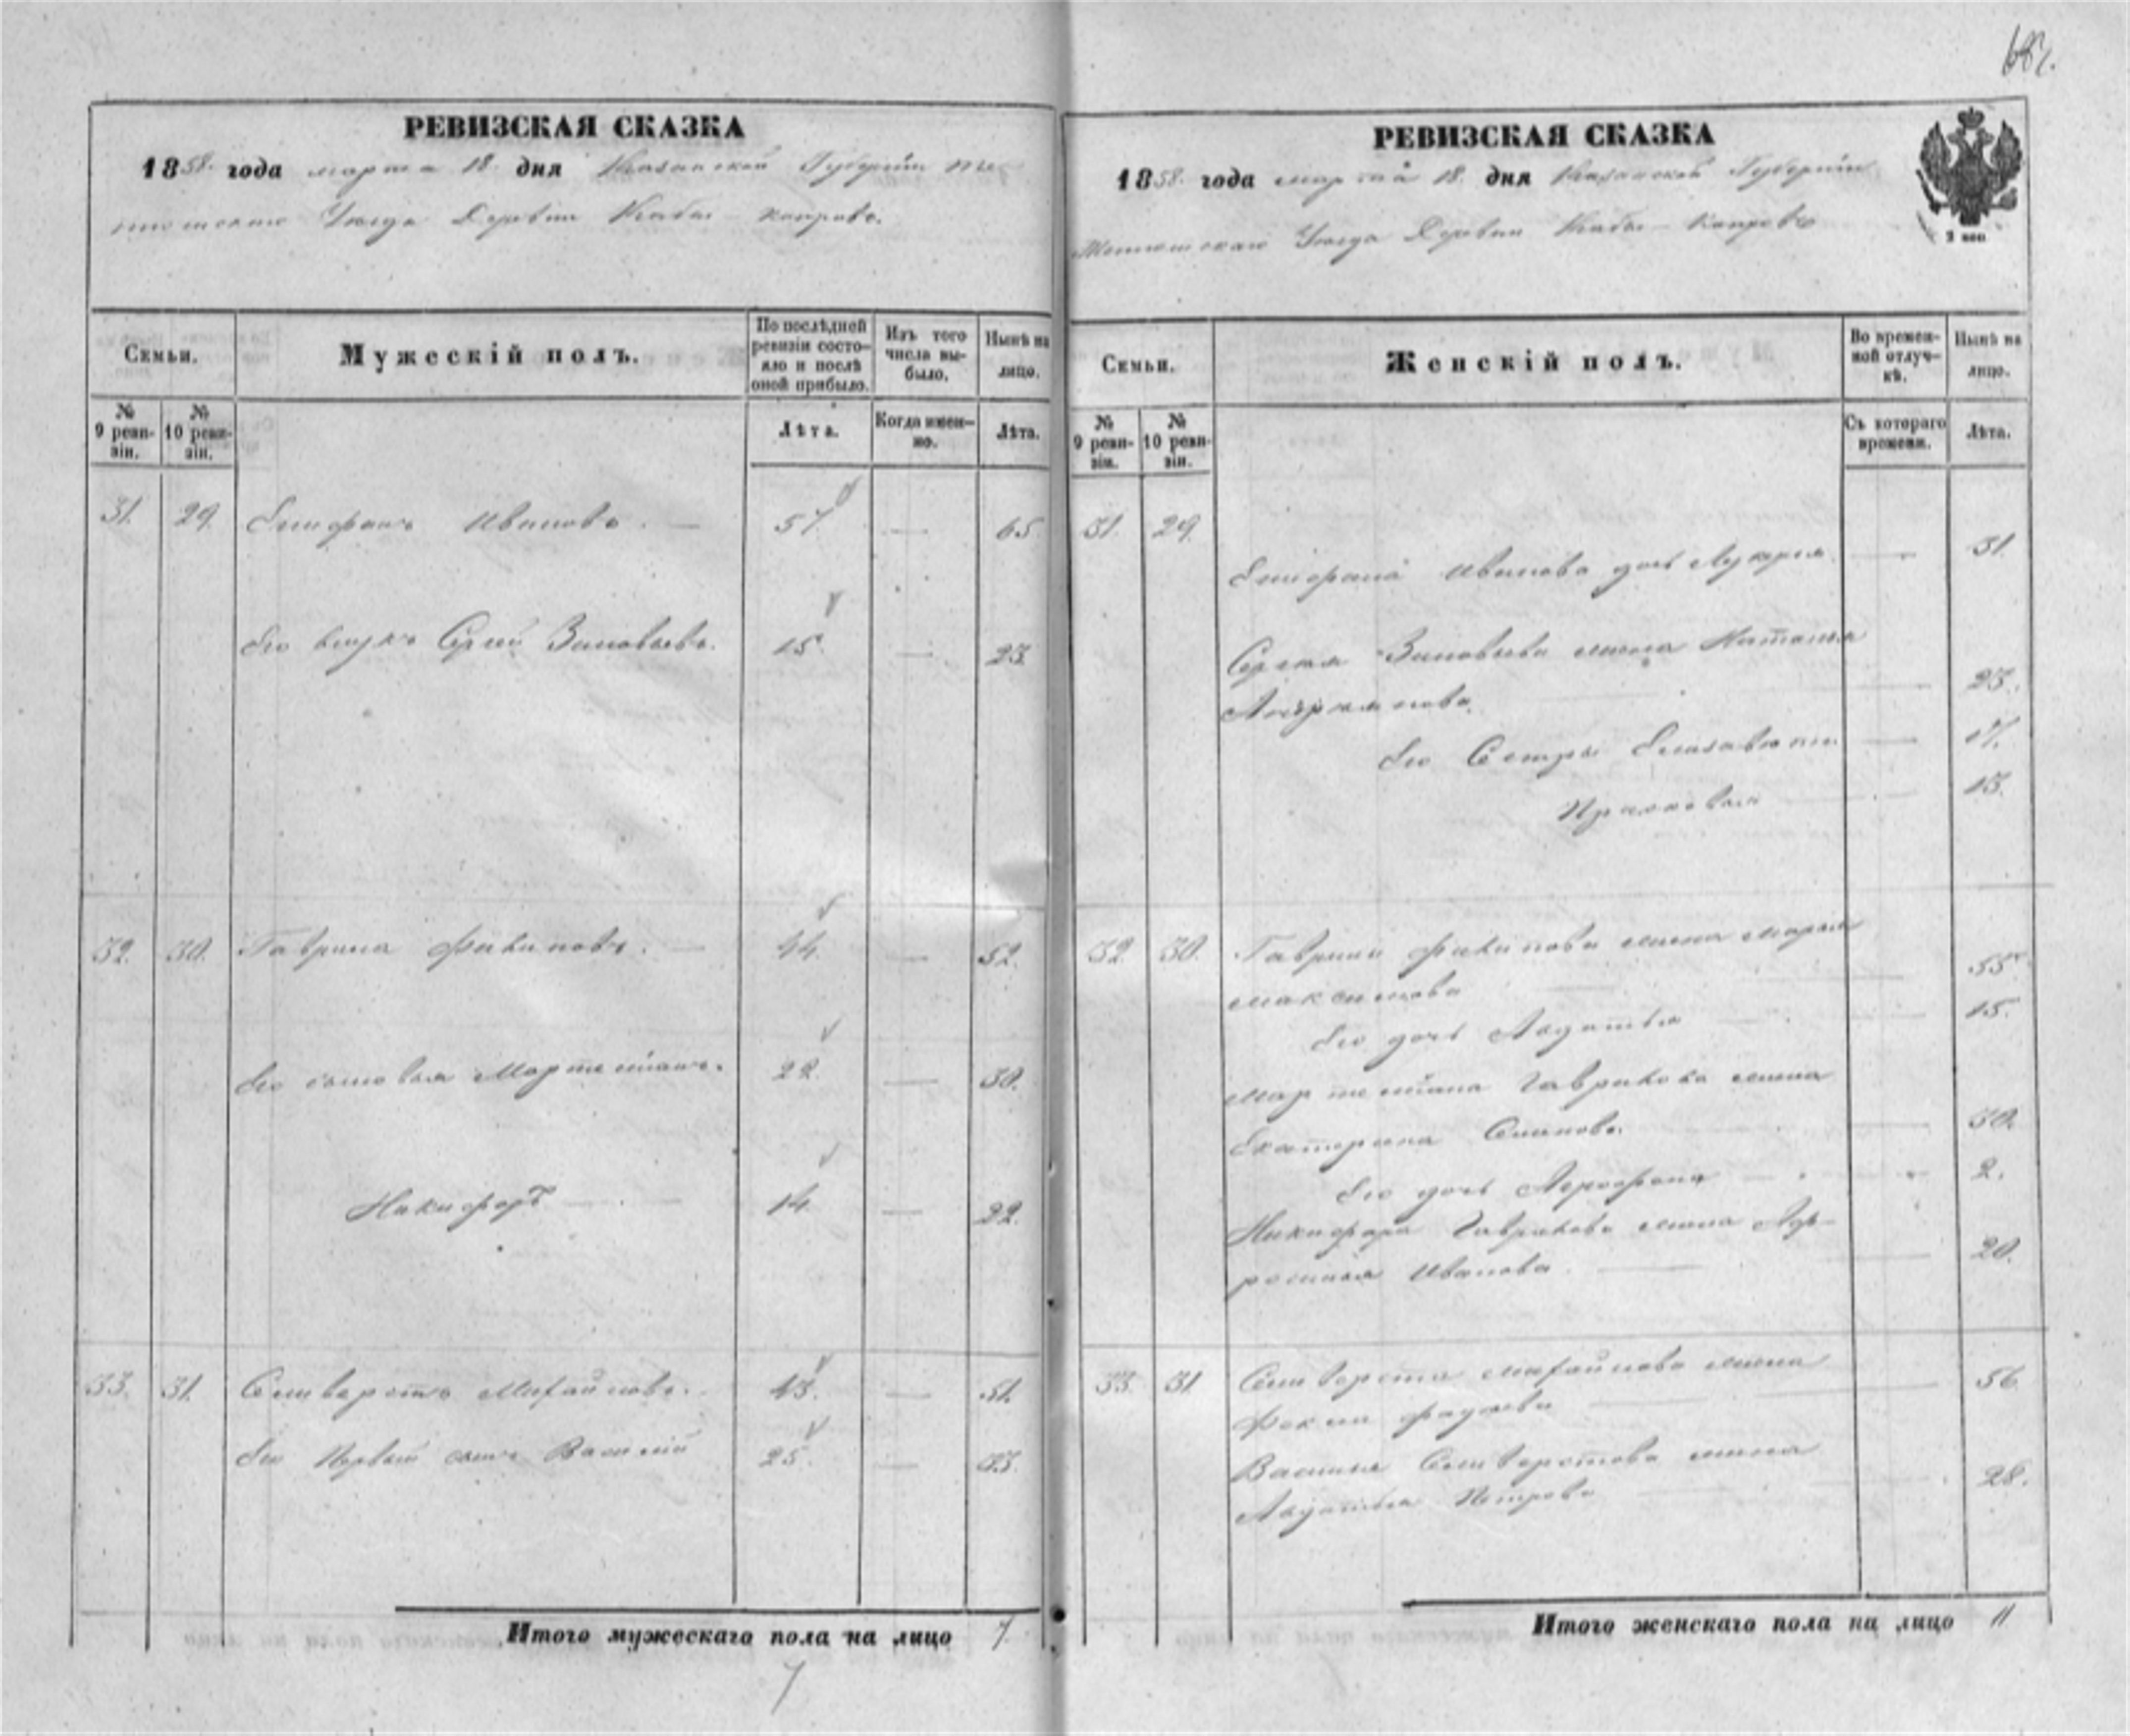 РЕВИЗСКАЯ СКАЗКА
1858. года марта 18. дня Казанской Губернiи Те-
тюшскаго Уезда Деревни Кабы-Копрово.
Семьи.
Мужескiй полъ.
По послѣдней ревизiи состо-яло и послѣ оной прибыло.
Изъ того числа вы-было.
Нынѣ на лицо.
№ 9 реви-зiи.
№ 10 реви-зiи.
Лѣта.
Когда имен-но.
Лѣта.
31. 29. Епифанъ Ивановъ. — 57. — 65
Его внукъ Сергей Зиновьевъ. 15. — 23
32. 30. Гаврила Филиповъ. — 44. — 52.
Его сыновья Мартемiанъ. 22. — 30.
Никифоръ — 14. — 22.
33. 31. Селиверстъ Михайловъ. 43. — 51.
Его Первый сынъ Василiй 25. — 33.
Итого мужескаго пола на лицо 7.
7
РЕВИЗСКАЯ СКАЗКА
1858. года марта 18. дня Казанской Губернiи
Тетюшскаго Уезда Деревни Кабы-Копрово
2 коп
Семьи.
Женскiй полъ.
Во времен-ной отлуч-кѣ.
Нынѣ на лицо.
№ 9 реви-зiи.
№ 10 реви-зiи.
Съ котораго времени.
Лѣта.
31. 29.
Епифана Иванова дочь Лукерья — 31.
Сергея Зиновьева жена Наталья
23.
Его Сестры Елизавета — 17.
Прасковья — 13.
32. 30. Гаврилы Филипова жена Марья
Максимова — 55.
Его дочь Авдотья — 15.
Мартемiана Гаврилова жена
Екатерина — 30.
Его дочь — 2.
Никифора Гаврилова жена
Иванова — 20.
33. 31. Селиверста Михайлова жена
Фекла — 56
Василья Селиверстова жена
Авдотья Петрова — 28.
Итого женскаго пола на лицо 11